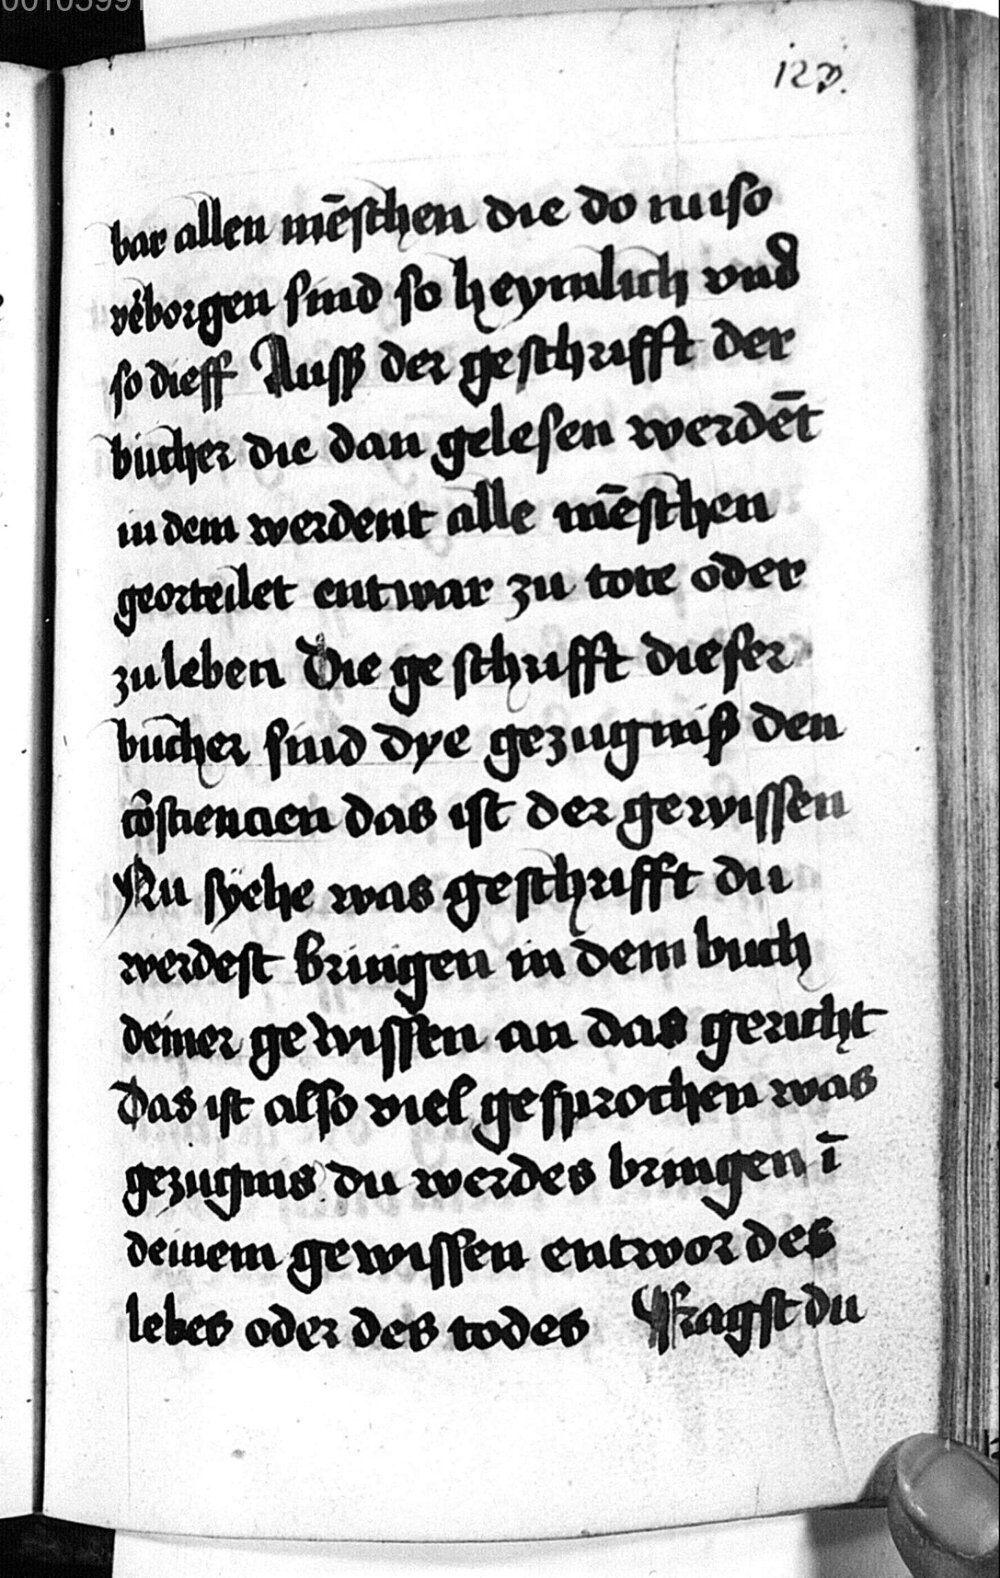 bar allen mēschen die do nu so
v̓borgen sind so heymlich vnd
so dieff Auss der geschrifft der
bücher die dan gelesen werdēt
in dem werdent alle mēschen
georteilet entwar zu tote oder
zu leben Die geschrifft dieser
bücher sind dye gezugniß den
cōsciencien das ist der gewissen
Nu syehe was geschrifft du
werdest bringen in dem buch
deiner gewissen an das gericht
Das ist also viel gesprochen was
gezugnis du werdes bringen ī
deinem gewissen entwor des
lebes oder des todes Fragst du